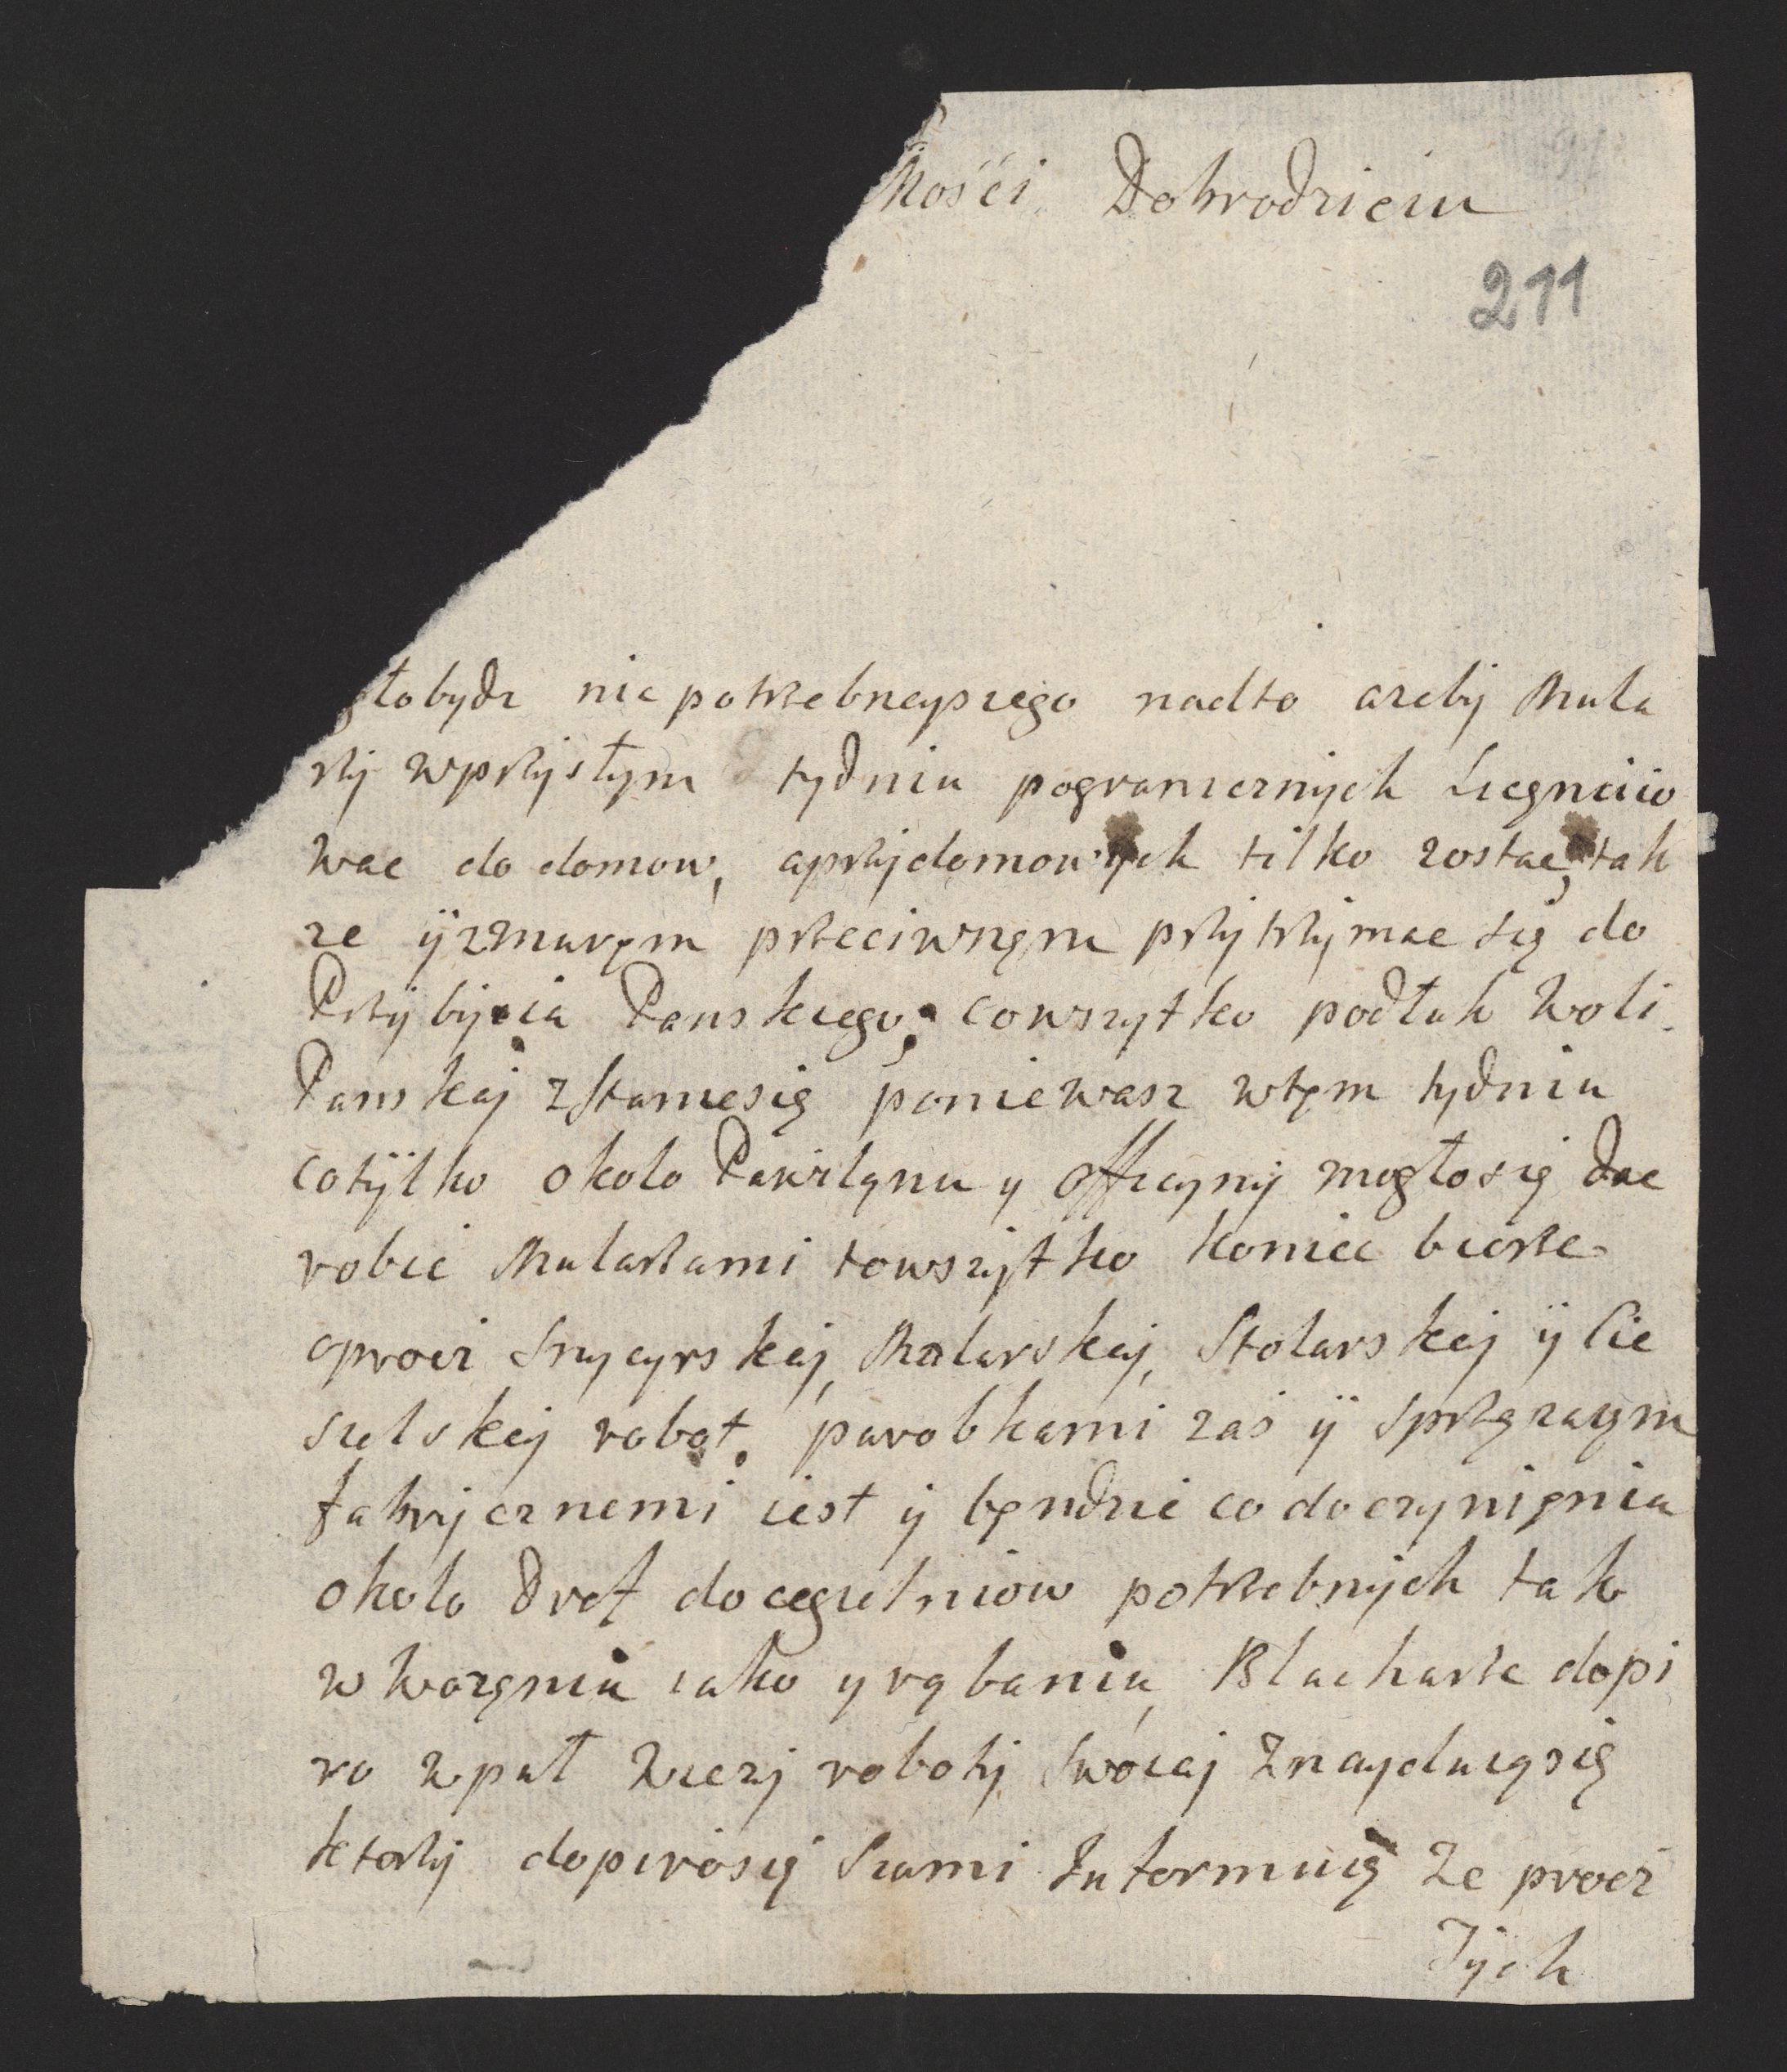 Mości Dobrodzieiu
211
głobydz nic potrzebneyszego nadto azeby Mula
rzÿ wprzÿszłym tydniu pogranicznÿch Luegnciio
wac do domow, aprzÿdomowÿch tilko zostac, tak
ze ÿzmurem przeciwnem przÿtrzÿmac się do
Przÿbÿcia Panskiego; cowszytko podłuk woli
Panskiej zstaniesię poniewasz wtem tydniu
cotÿlko okolo Pawilonu y Officynÿ mogłosię dac
robić Mularzami towszÿtko koniec bierze
oprocz Snycyrskiej, Malarskiej, Stolarskiej ÿ Cie
sielskiej robot. parobkami zas ÿ sprzęzaym
fabrÿcznemi iest ÿ będzie co doczynięnia
okolo Dref docegielniow potrzebnÿch tak
w wozęniu iako y rąbaniu, Blacharze dopi
ro wpuł wiezÿ robotÿ swoiej znayduiąsię
ktorzÿ dopirosię Sami Informuią ze procz
Tÿch